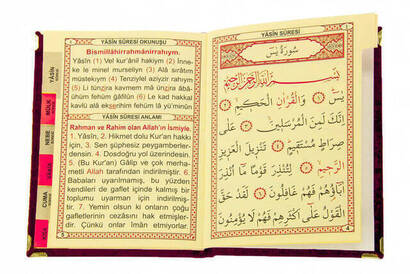 YÂSİN
MÜLK
NEBE
CUMA
YÂSİN SÛRESİ OKUNUŞU
Bismillâhirrahmânirrahıym.
Yâsîn (1) Vel kur'ânil hakiym (2) İnne-
ke le minel murseliyn (3) Alâ sırâtım
müstekıym (4) Tenziylel aziyzir rahıym
(5) Li tünzira kavmem mâ ünzira âbâ-
ühüm fehüm ğâfilûn (6) Le kad hakkal
kavlü alâ ekserihim fehüm lâ yü'minûn
YÂSİN SÛRESİ ANLAMI
Rahman ve Rahim olan Allah'ın İsmiyle.
1. Yâsîn, 2. Hikmet dolu Kur'an hakkı
için, 3. Sen şüphesiz peygamberler-
densin. 4. Dosdoğru yol üzerindesin.
5. (Bu Kur'an) Gâlip ve çok merha-
metli Allah tarafından indirilmiştir. 6.
Babaları uyarılmamış, bu yüzden
kendileri de gaflet içinde kalmış bir
toplumu uyarman için indirilmiş-
tir. 7. Yemin olsun ki onların çoğu
gafletlerinin cezâsını hak etmişler-
dir. Çünkü onlar İman etmiyorlar.
YÂSİN SÛRESİ
سُورَةُ يٰسٓ
بِسْمِ اللّٰهِ الرَّحْمٰنِ الرَّحِيمِ
يٰسٓ ﴿١﴾ وَالْقُرْاٰنِ الْحَكِيمِ ﴿٢﴾
اِنَّكَ لَمِنَ الْمُرْسَلِينَ ﴿٣﴾ عَلٰى
صِرَاطٍ مُسْتَقِيمٍ ﴿٤﴾ تَنْزِيلَ الْعَزِيزِ
الرَّحِيمِ ﴿٥﴾ لِتُنْذِرَ قَوْمًا مَٓا اُنْذِرَ
اٰبَٓاؤُ۬هُمْ فَهُمْ غَافِلُونَ ﴿٦﴾ لَقَدْ حَقَّ
الْقَوْلُ عَلٰٓى اَكْثَرِهِمْ فَهُمْ لَا يُؤْمِنُونَ